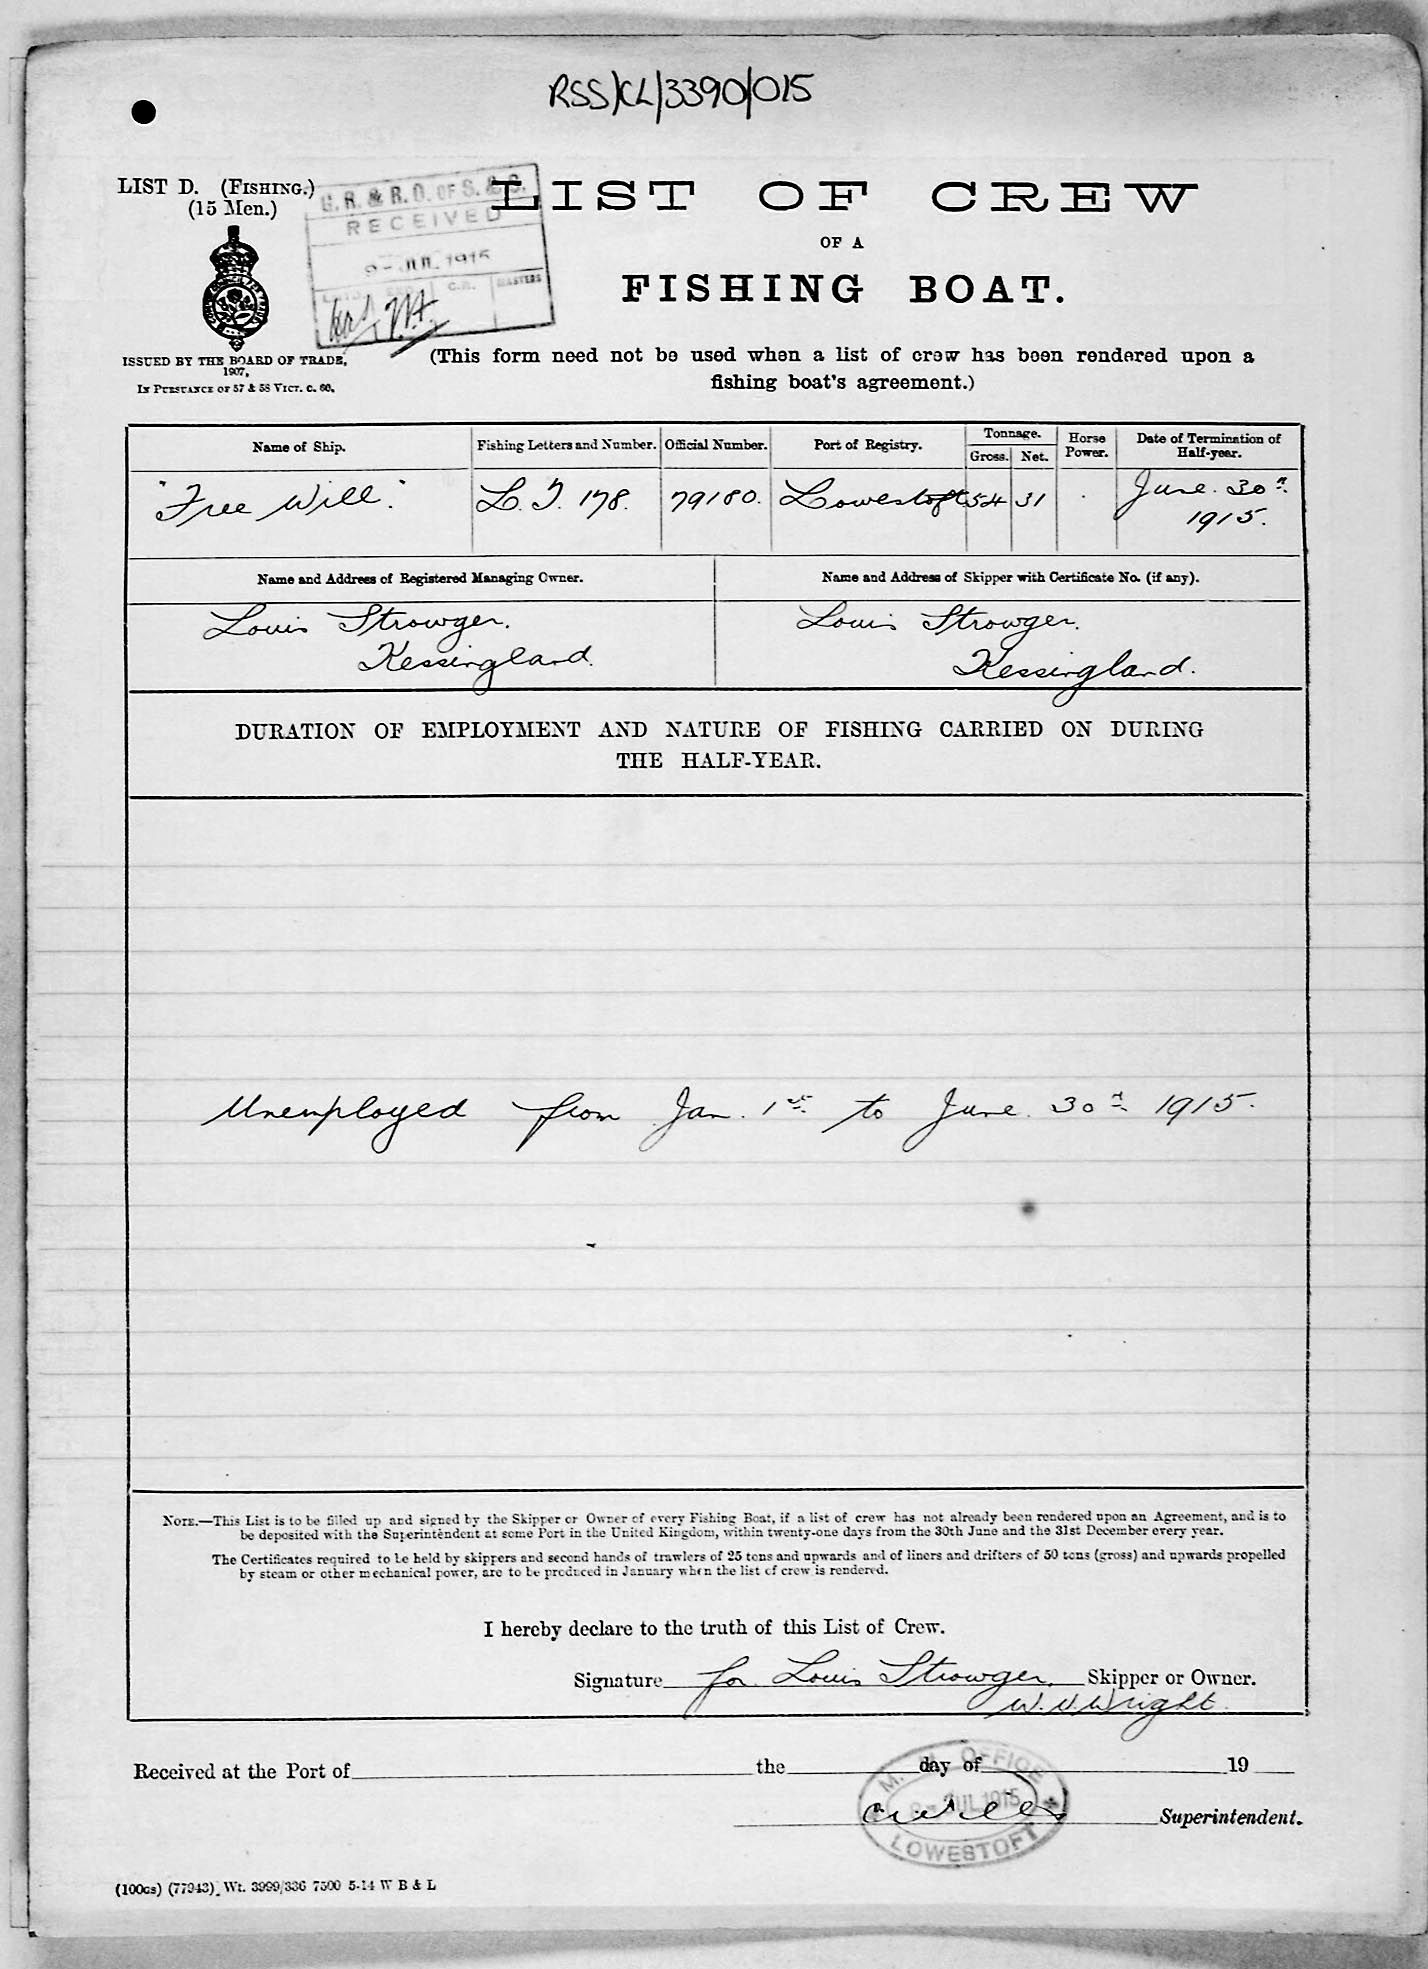 RSS/CL/3390/015
LIST D. (FISHING.)
(15 Men.)
G. R. & R. O. OF S. & S.
RECEIVED
9 - JUL 1915
C.R. MASTERS
LIST OF CREW
OF A
FISHING BOAT.
ISSUED BY THE BOARD OF TRADE,
1907,
IN PURSUANCE OF 57 & 58 VICT. C. 60.
(This form need not be used when a list of crew has been rendered upon a
fishing boat's agreement.)
Name of Ship. Fishing Letters and Number. Official Number. Port of Registry. Tonnage. Gross. Net. Horse Power. Date of Termination of Half-year.
"Free Will" L.T. 178. 79180. Lowestoft 54 31 June 30th
1915.
Name and Address of Registered Managing Owner. Name and Address of Skipper with Certificate No. (if any).
Louis Strowger. Louis Strowger.
Kessingland. Kessingland.
DURATION OF EMPLOYMENT AND NATURE OF FISHING CARRIED ON DURING
THE HALF-YEAR.
Unemployed from Jan. 1st to June 30th 1915.
NOTE.—This List is to be filled up and signed by the Skipper or Owner of every Fishing Boat, if a list of crew has not already been rendered upon an Agreement, and is to
be deposited with the Superintendent at some Port in the United Kingdom, within twenty-one days from the 30th June and the 31st December every year.
The Certificates required to be held by skippers and second hands of trawlers of 25 tons and upwards and of liners and drifters of 50 tons (gross) and upwards propelled
by steam or other mechanical power, are to be produced in January when the list of crew is rendered.
I hereby declare to the truth of this List of Crew.
Signature for Louis Strowger. Skipper or Owner.
W. V. Wright.
Received at the Port of the day of 19
M. M. OFFICE
JUL 1915
LOWESTOFT
Superintendent.
(100gs) (77943). Wt. 3999/336 7500 5-14 W B & L